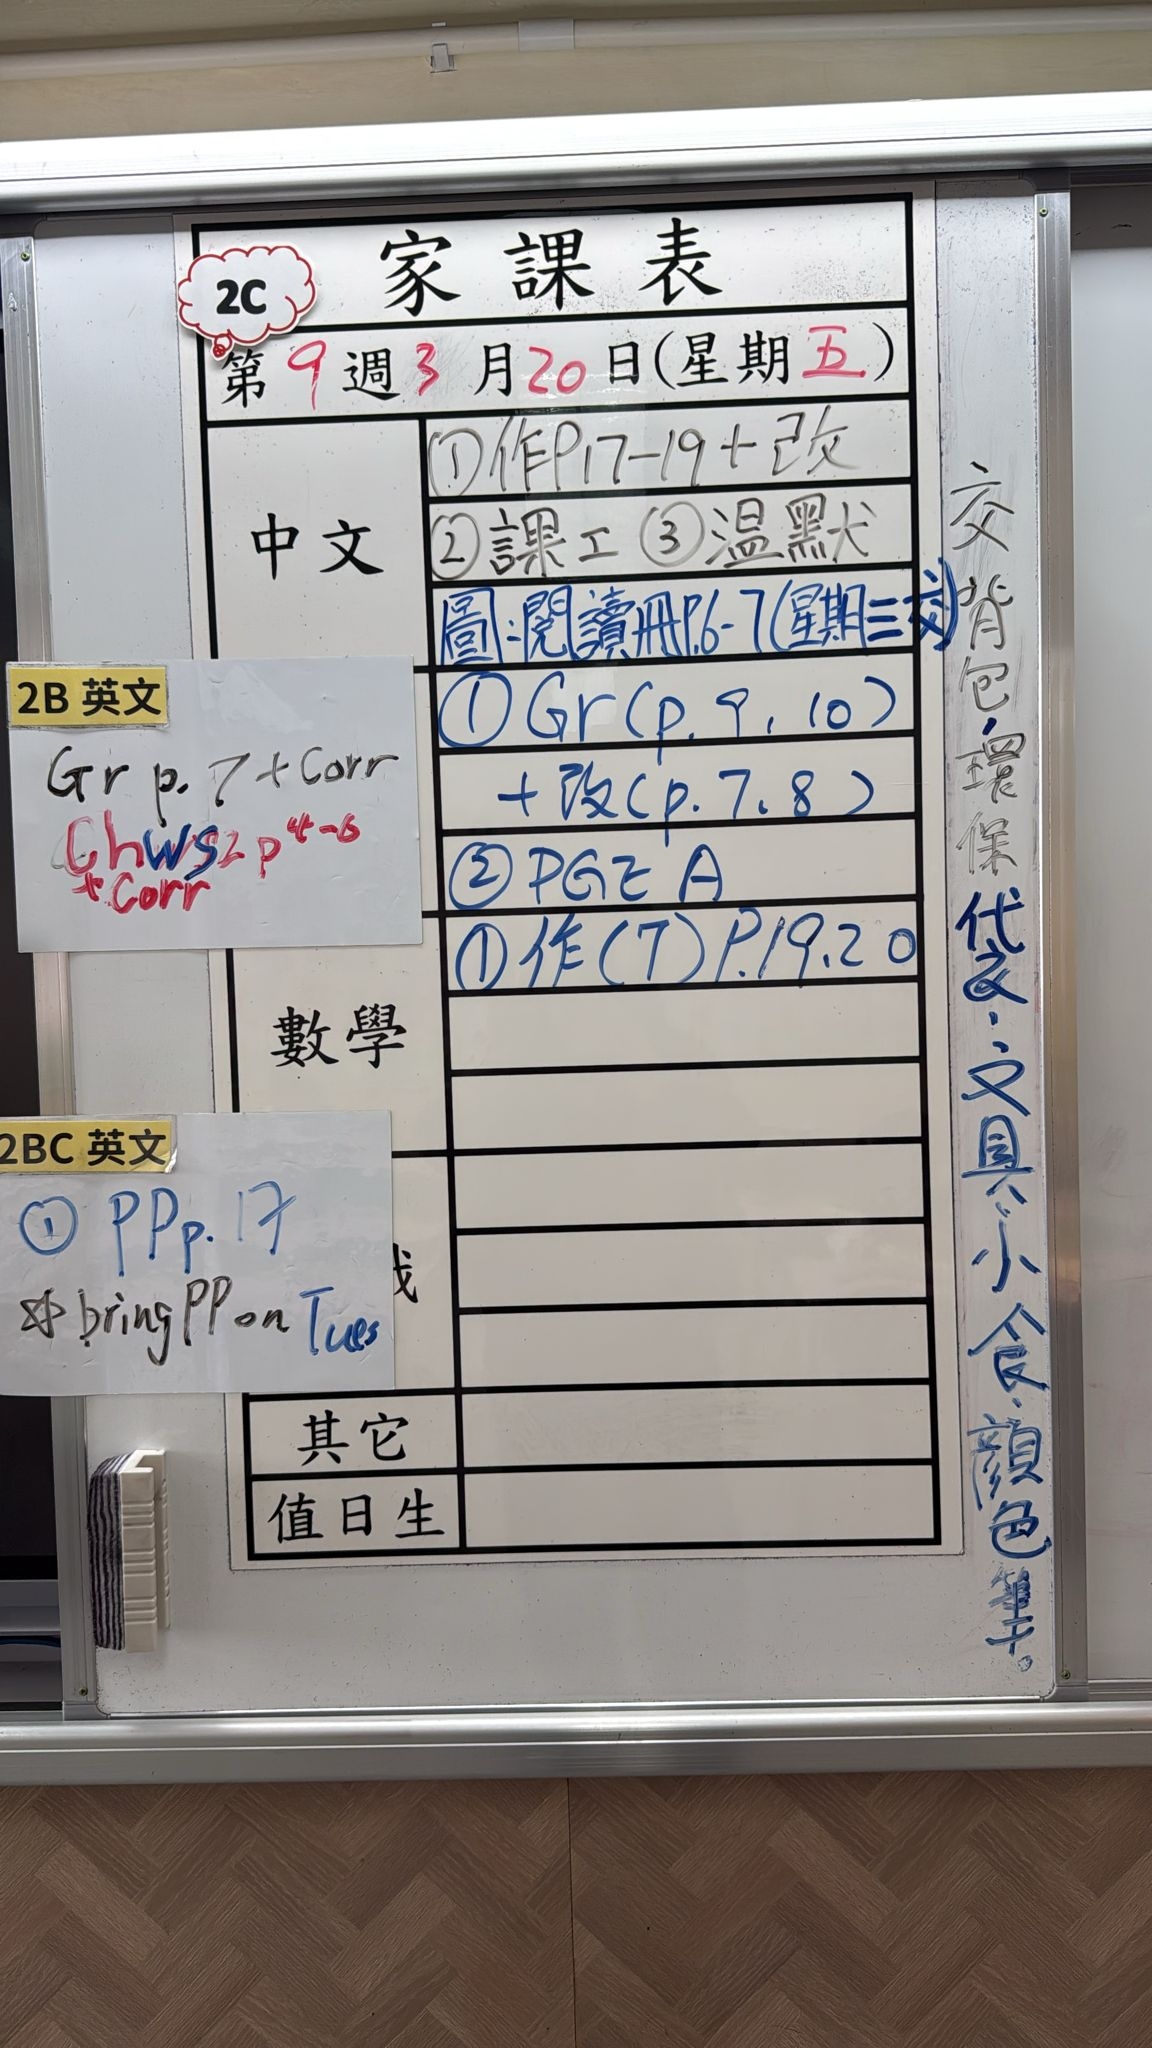 2C
家課表
第9週3月20日(星期五)
中文
①作P17-19+改
②課工 ③温默
圖:閱讀冊P.6-7(星期三交)
①Gr(p.9,10)
+改(p.7,8)
②PGE A
數學
①作(T)P.19.20
其它
值日生
2B 英文
Gr p.7+Corr
ChWS2 p4-6
+Corr
2BC 英文
① PP p.17
bring PP on Tues
交背包,環保袋.文具.小食.顏色筆。